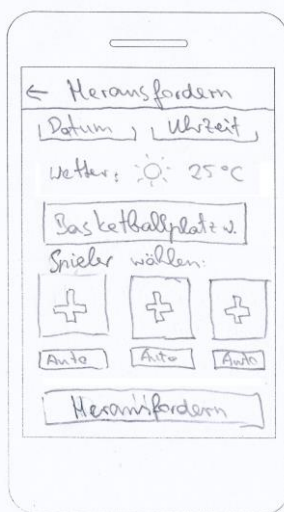 ← Herausfordern
Datum Uhrzeit
Wetter: 25°C
Basketballplatz v.
Spieler wählen:
+ + +
Auto Auto Auto
Herausfordern